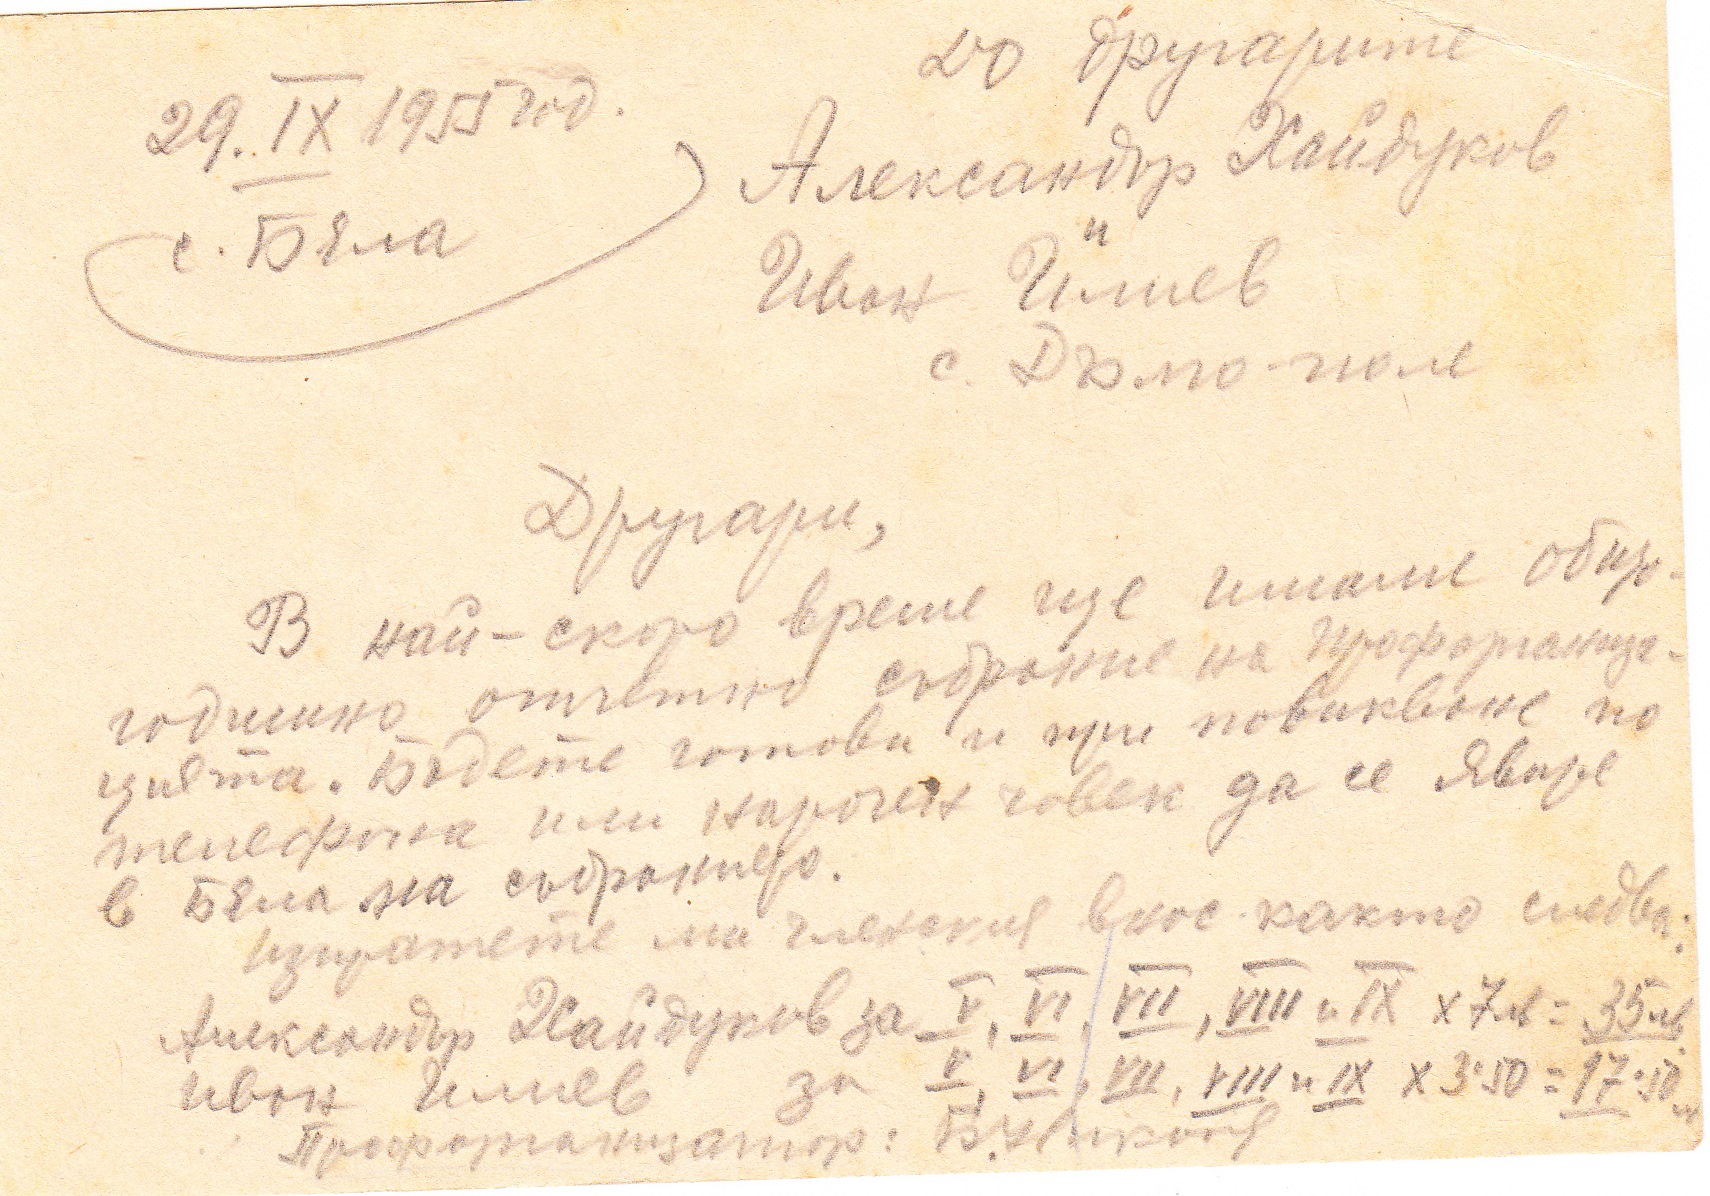 До другарите
29. IX 1955 год.
Александър Хайдуков
и
с. Бяла
Иван Илиев
с. Дълго-поле
Другари,
В най-скоро време ще имаме общо-
годишно отчетно събрание на профорганиза-
цията. Бъдете готови и при повикване по
телефона или нарочен човек да се явите
в Бяла на събранието.
Изпратете ми членския внос както следва:
Александър Хайдуков за V, VI, VII, VIII и IX х 7лв = 35лв
Иван Илиев за V, VI, VII, VIII и IX х 3:50 = 17:50 лв
Профорганизатор: